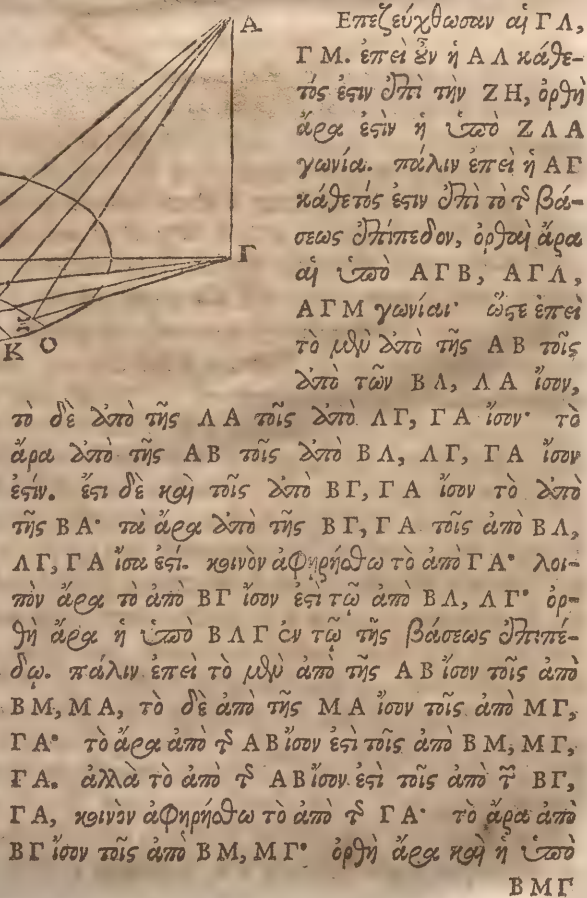 Α
Γ
Κ Ο
Ἐπεζεύχθωσαν αἱ ΓΛ,
ΓΜ. ἐπεὶ ȣ̃ν ἡ ΑΛ κάθε-
τός ἐϛιν ἐπὶ τὴν ΖΗ, ὀρθὴ
ἄρα ἐϛὶν ἡ ὑπὸ ΖΛΑ
γωνία. πάλιν ἐπεὶ ἡ ΑΓ
κάθετός ἐϛιν ἐπὶ τὸ τ͂ βά-
σεως ἐπίπεδον, ὀρθαὶ ἄρα
αἱ ὑπὸ ΑΓΒ, ΑΓΛ,
ΑΓΜ γωνίαι· ὥϛε ἐπεὶ
τὸ μὲν ἀπὸ τῆς ΑΒ τοῖς
ἀπὸ τῶν ΒΛ, ΛΑ ἴσον,
τὸ δὲ ἀπὸ τῆς ΛΑ τοῖς ἀπὸ ΛΓ, ΓΑ ἴσον· τὸ
ἄρα ἀπὸ τῆς ΑΒ τοῖς ἀπὸ ΒΛ, ΛΓ, ΓΑ ἴσον
ἐϛίν. ἔϛι δὲ καὶ τοῖς ἀπὸ ΒΓ, ΓΑ ἴσον τὸ ἀπὸ
τῆς ΒΑ· τὰ ἄρα ἀπὸ τῆς ΒΓ, ΓΑ τοῖς ἀπὸ ΒΛ,
ΛΓ, ΓΑ ἴσα ἐϛί. κοινὸν ἀφῃρήσθω τὸ ἀπὸ ΓΑ· λοι-
πὸν ἄρα τὸ ἀπὸ ΒΓ ἴσον ἐϛὶ τῷ ἀπὸ ΒΛ, ΛΓ· ὀρ-
θὴ ἄρα ἡ ὑπὸ ΒΛΓ ἐν τῷ τῆς βάσεως ἐπιπέ-
δῳ. πάλιν ἐπεὶ τὸ μὲν ἀπὸ τῆς ΑΒ ἴσον τοῖς ἀπὸ
ΒΜ, ΜΑ, τὸ δὲ ἀπὸ τῆς ΜΑ ἴσον τοῖς ἀπὸ ΜΓ,
ΓΑ· τὸ ἄρα ἀπὸ τ͂ ΑΒ ἴσον ἐϛὶ τοῖς ἀπὸ ΒΜ, ΜΓ,
ΓΑ. ἀλλὰ τὸ ἀπὸ τ͂ ΑΒ ἴσον ἐϛὶ τοῖς ἀπὸ τ͂ ΒΓ,
ΓΑ, κοινὸν ἀφῃρήσθω τὸ ἀπὸ τ͂ ΓΑ· τὸ ἄρα ἀπὸ
ΒΓ ἴσον τοῖς ἀπὸ ΒΜ, ΜΓ· ὀρθὴ ἄρα καὶ ἡ ὑπὸ
ΒΜΓ